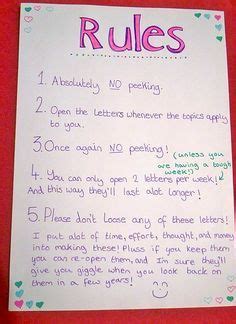 Rules
1. Absolutely NO peeking.
2. Open the letters whenever the topics apply
to you.
3. Once again NO peeking!
(unless you
are having a tough
week!)
4. You can only open 2 letters per week!
And this way they'll last alot longer!
5. Please don't Loose any of these letters!
I put alot of time, effort, thought, and money
into making these! Pluss if you keep them
you can re-open them, and Im sure they'll
give you giggle when you look back on
them in a few years!